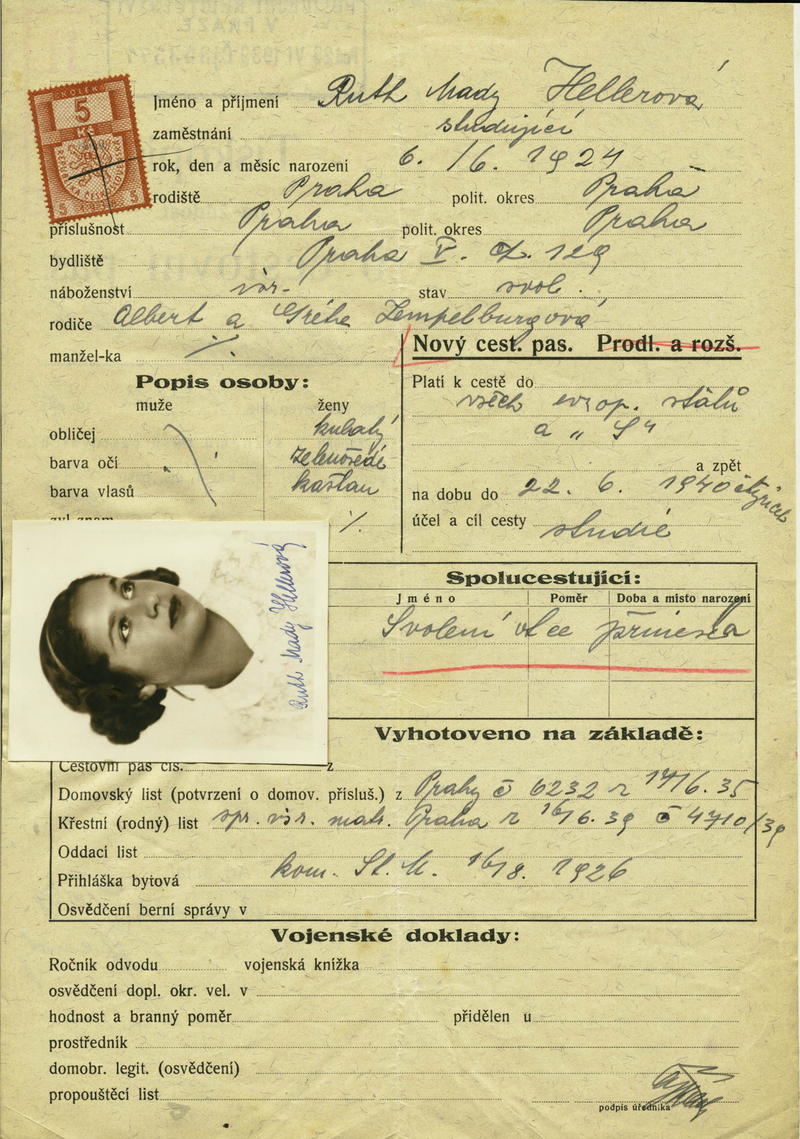 KOLEK
5
Kč
Jméno a příjmení Ruth Mady Hellerová
zaměstnání studující
rok, den a měsíc narození 6. /6. 1924
rodiště Praha polit. okres Praha
příslušnost Praha polit. okres Praha
bydliště Praha V. čp. 129
náboženství isr. stav svob.
rodiče Albert a Gréta Zempelburgová
manžel-ka ./.
Nový cest. pas. Prodl. a rozš.
Popis osoby:
muže ženy
obličej kulatý
barva očí zelenošedé
barva vlasů kaštan
./.
Platí k cestě do
všech evrop. států
a „S"
a zpět
na dobu do 22. 6. 1940
účel a cíl cesty studie
Ruth Mady Hellerová
Spolucestující:
Jméno Poměr Doba a místo narození
Svolení otce přinesla
Vyhotoveno na základě:
Cestovní pas čís. z
Domovský list (potvrzení o domov. přísluš.) z Prahy č 6232 z 17/6.35
Křestní (rodný) list spr. isr. matr. Praha z 16/6.39 č 4710/39
Oddací list
Přihláška bytová kom. St. M. 16/8. 1926
Osvědčení berní správy v
Vojenské doklady:
Ročník odvodu vojenská knížka
osvědčení dopl. okr. vel. v
hodnost a branný poměr přidělen u
prostředník
domobr. legit. (osvědčení)
propouštěcí list
podpis úředníka